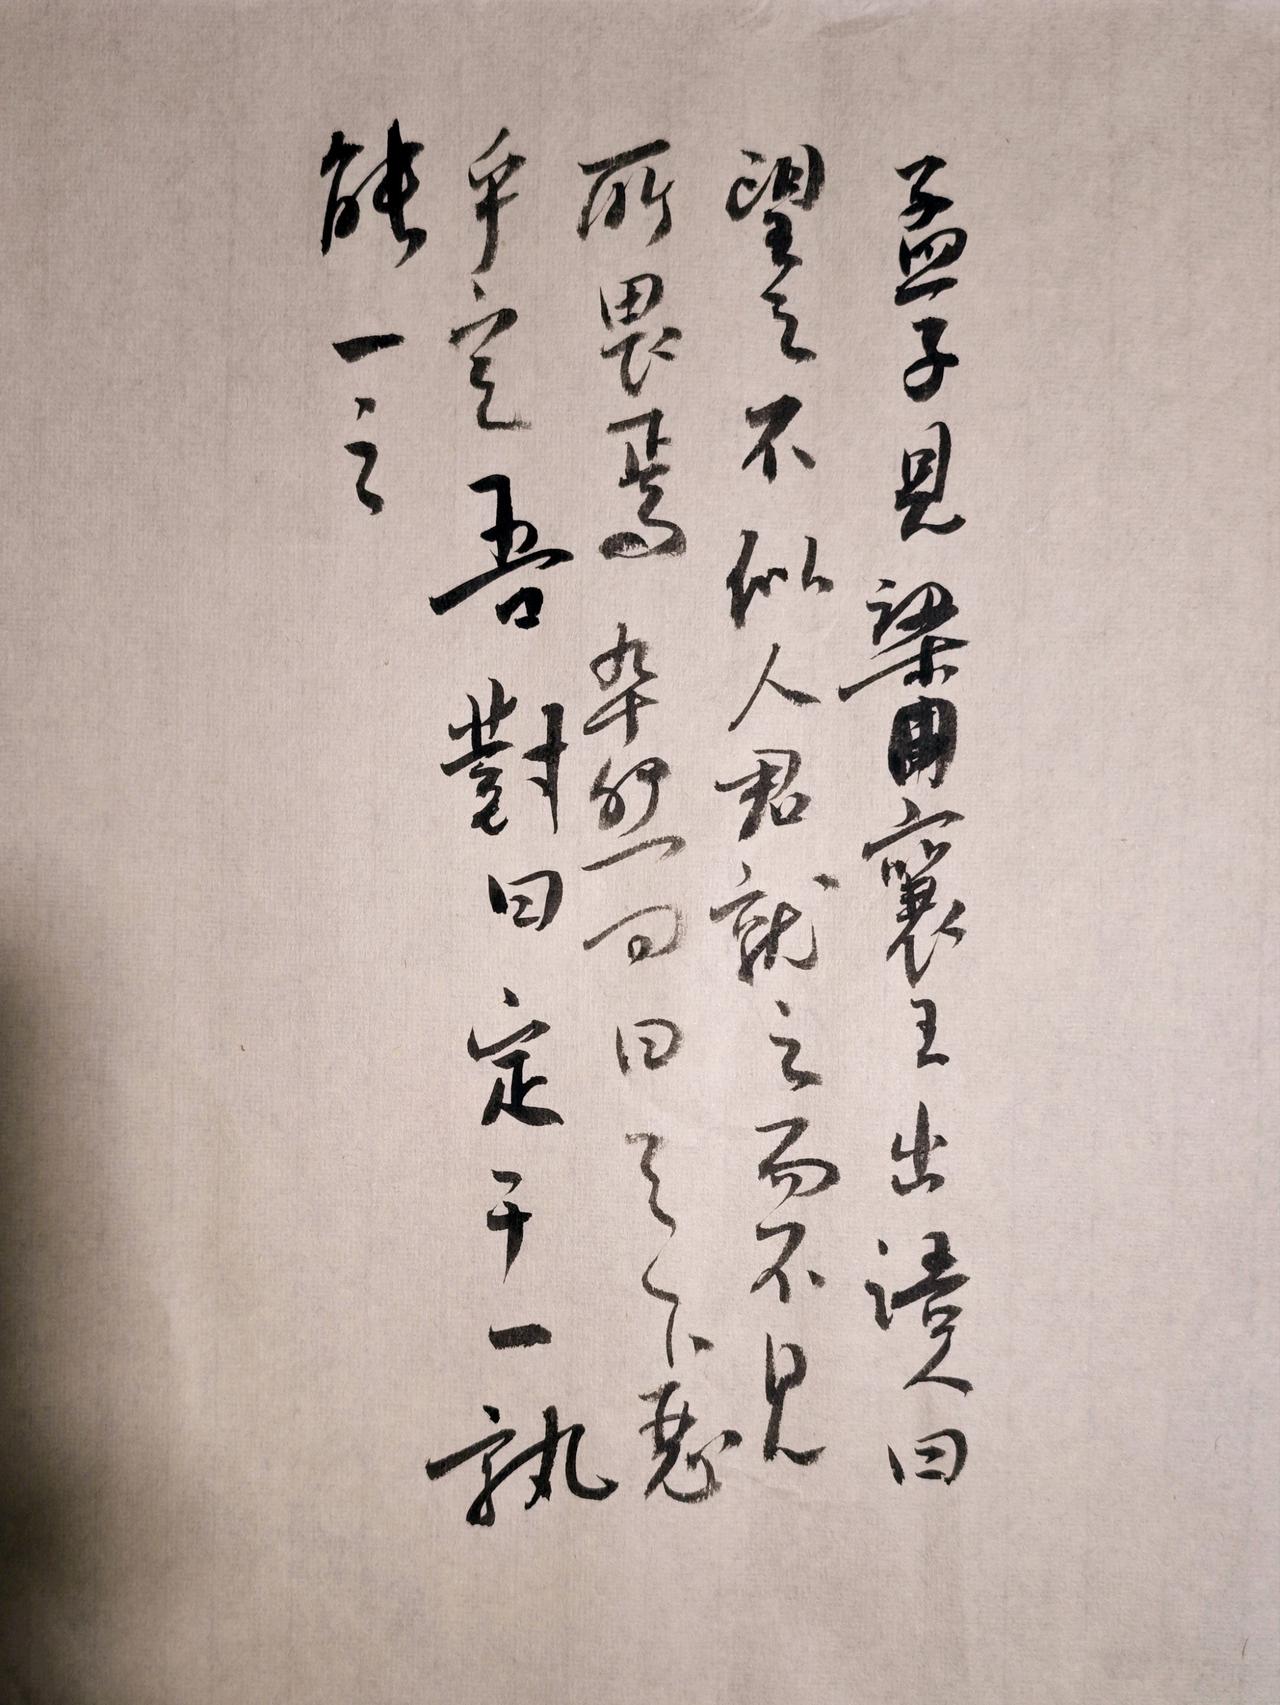 孟子見梁襄王出語人曰
望之不似人君就之而不見
所畏焉卒然問曰天下惡
乎定吾對曰定于一孰
能一之